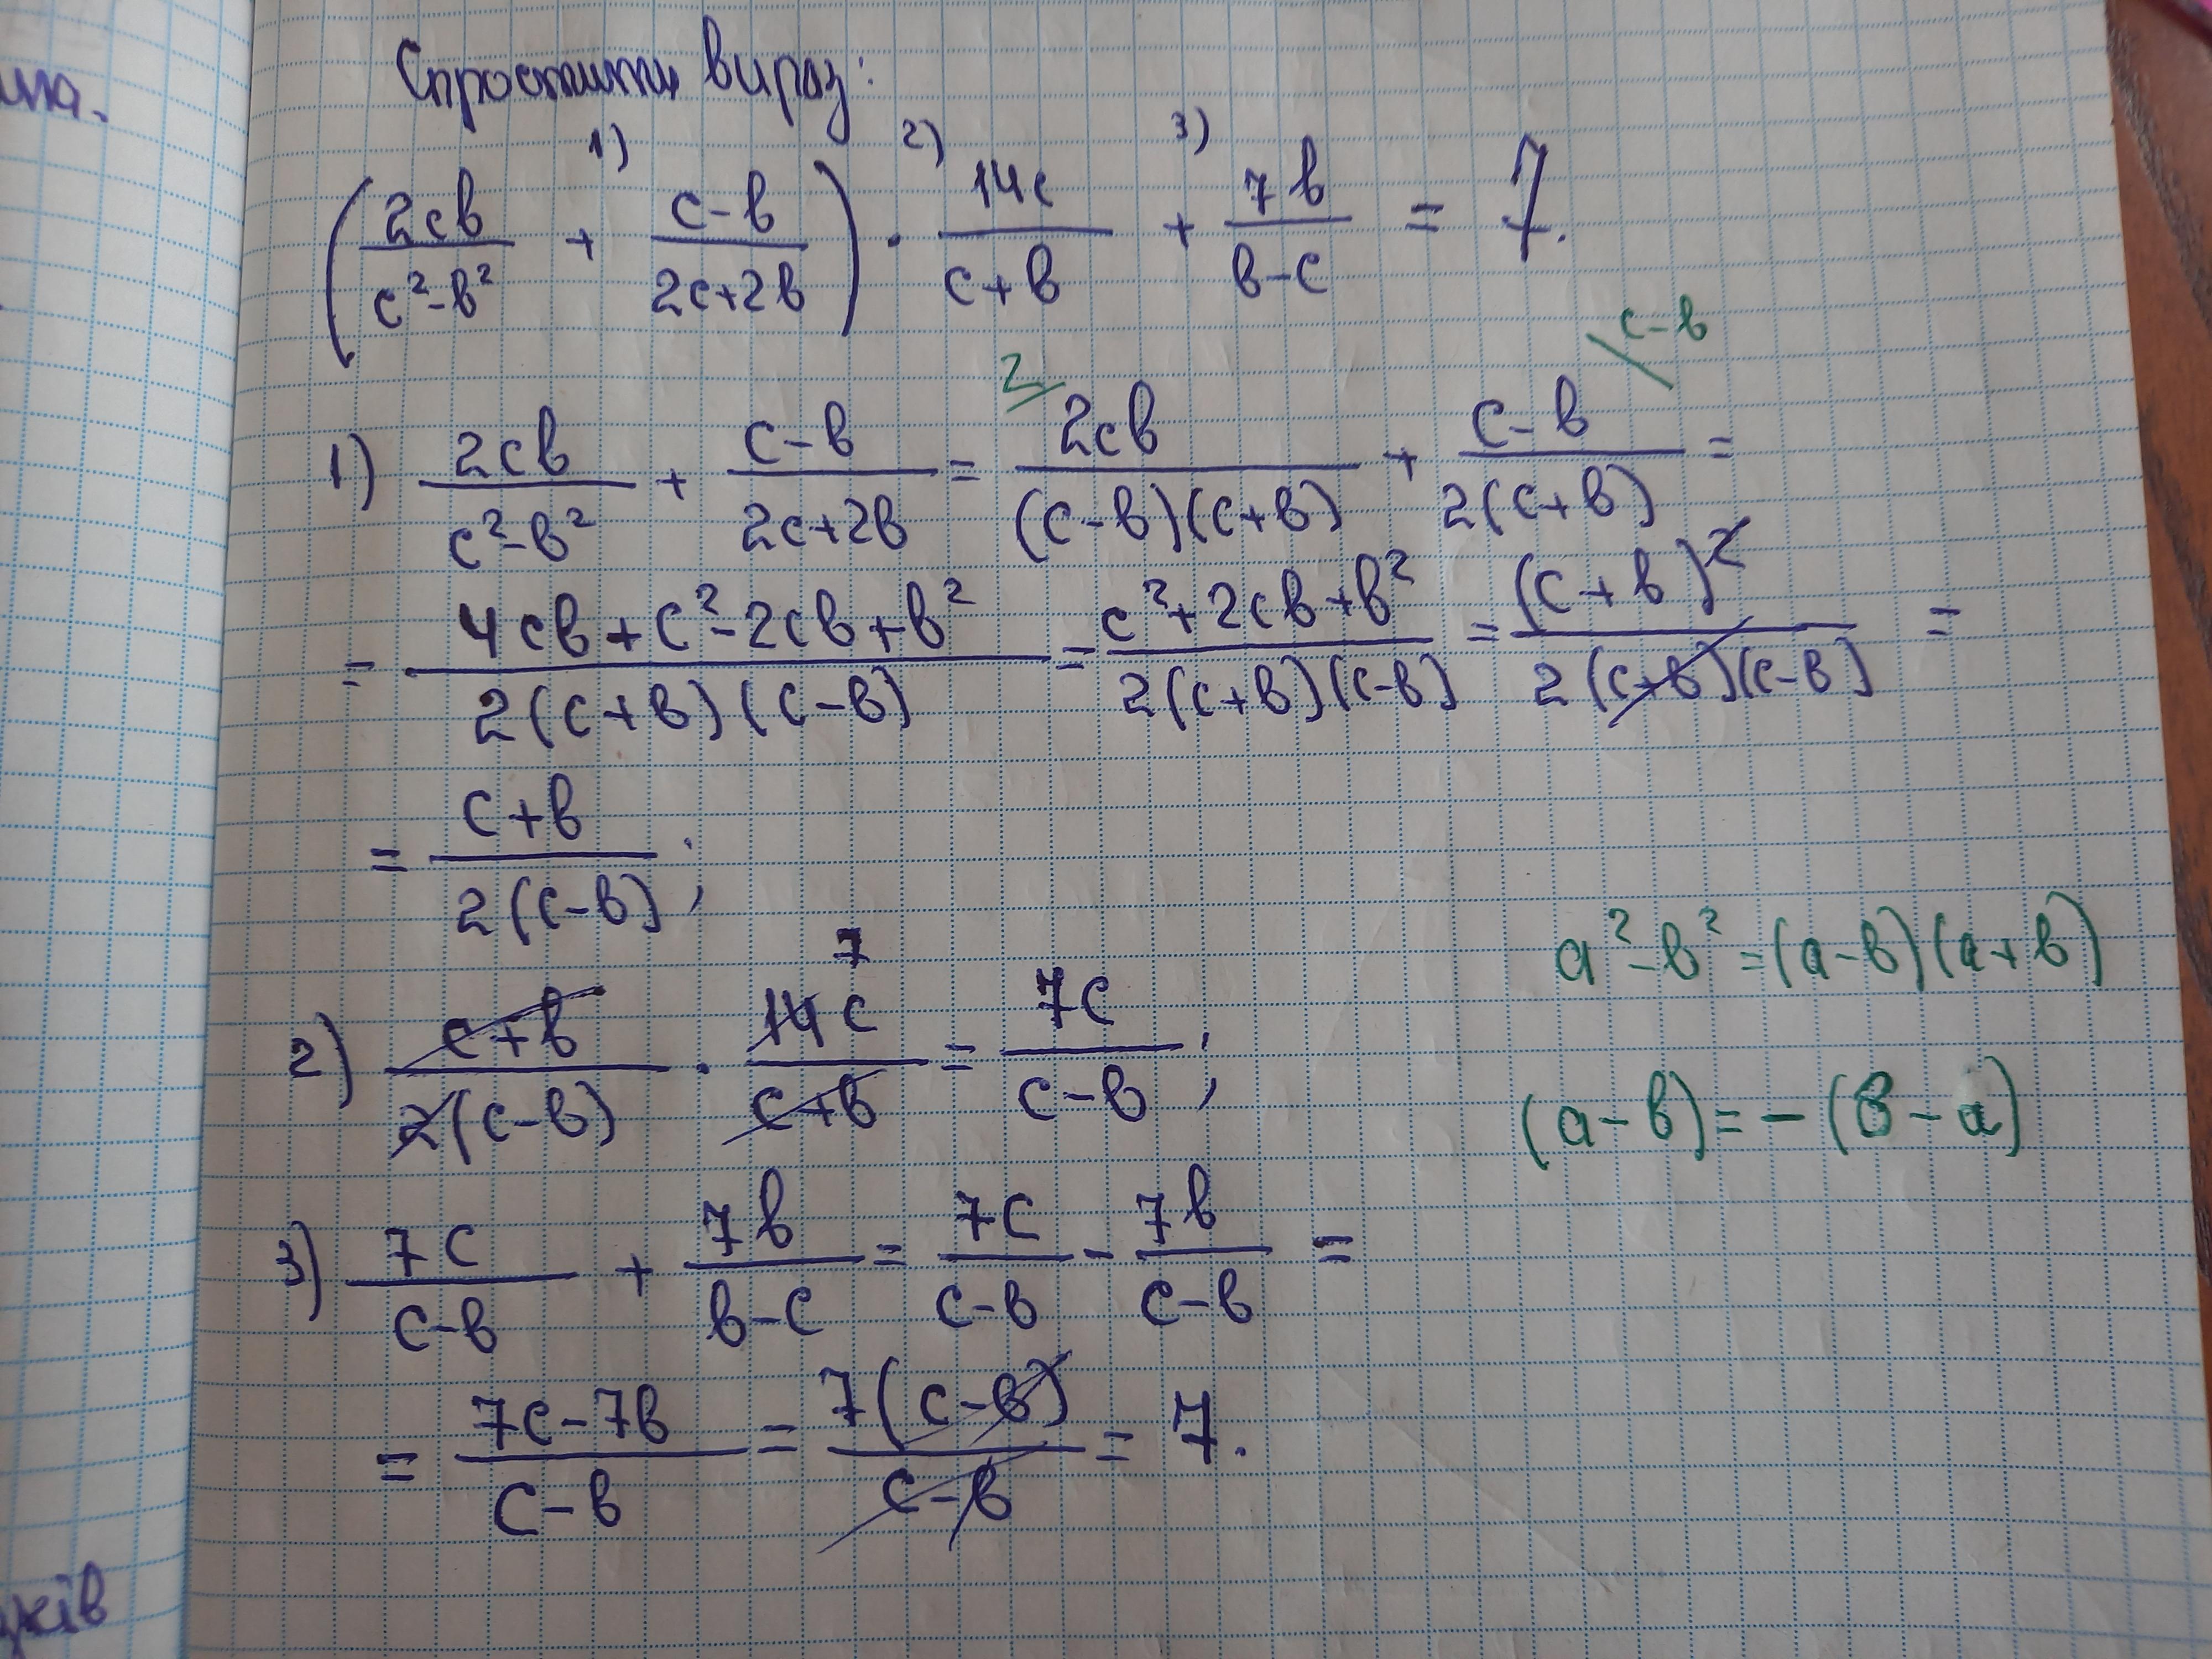 Спростити вираз:
(2cb/(c²-b²) + ¹⁾ (c-b)/(2c+2b)) · ²⁾ 14c/(c+b) + ³⁾ 7b/(b-c) = 7.
1) 2cb/(c²-b²) + (c-b)/(2c+2b) = 2/ 2cb/((c-b)(c+b)) + (c-b)/(2(c+b)) \c-b =
= (4cb+c²-2cb+b²)/(2(c+b)(c-b)) = (c²+2cb+b²)/(2(c+b)(c-b)) = (c+b)²/(2(c+b)(c-b)) =
= (c+b)/(2(c-b));
a²-b²=(a-b)(a+b)
2) (c+b)/(2(c-b)) · 14c/(c+b) 7 = 7c/(c-b);
(a-b)=-(b-a)
3) 7c/(c-b) + 7b/(b-c) = 7c/(c-b) - 7b/(c-b) =
= (7c-7b)/(c-b) = 7(c-b)/(c-b) = 7.
ила.
ків